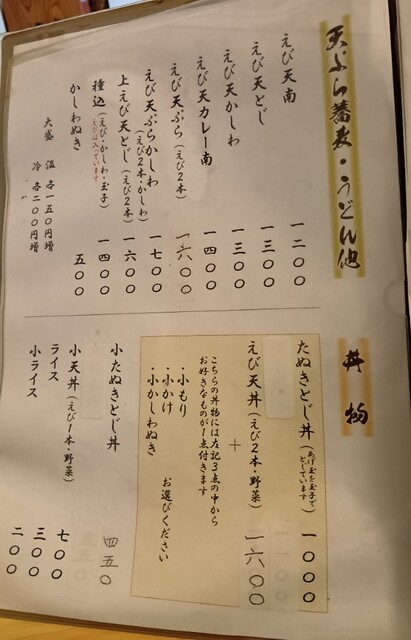 天ぷら蕎麦・うどん他
えび天南 一二〇〇
えび天とじ 一三〇〇
えび天かしわ 一三〇〇
えび天カレー南 一四〇〇
えび天ぷら（えび2本） 一六〇〇
えび天ぷらかしわ（えび2本・かしわ） 一七〇〇
上えび天とじ（えび2本） 一六〇〇
種込（えび・かしわ・玉子） 一四〇〇
えびは入っています
かしわぬき 五〇〇
大盛 温 各一五〇円増
冷 各二〇〇円増
丼物
たぬきとじ丼（あげ玉を玉子でとじています） 一〇〇〇
えび天丼（えび2本・野菜） 一六〇〇
＋
こちらの丼物には左記3点の中から
お好きなものが1点付きます
・小もり
・小かけ
・小かしわぬき
お選びください
小たぬきとじ丼 四五〇
小天丼（えび1本・野菜） 七〇〇
ライス 三〇〇
小ライス 二〇〇